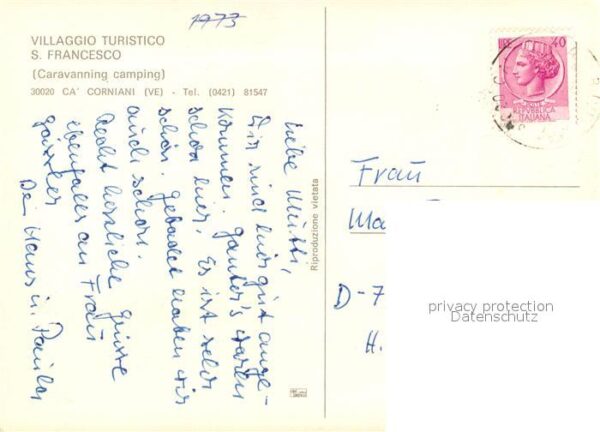 1973
VILLAGGIO TURISTICO
S. FRANCESCO
(Caravanning camping)
30020 CA' CORNIANI (VE) - Tel. (0421) 81547
Liebe Mutti,
Wir sind hier gut ange-
kommen. Ganter's warten
schon hier. Es ist sehr
schön. Gebadet haben wir
auch schon.
Recht herzliche Grüsse
ebenfalls an Frau
Dein Hans u.
Riproduzione vietata
40
REPVBBLICA
ITALIANA
Frau
Ma
D-7
H.
privacy protection
Datenschutz